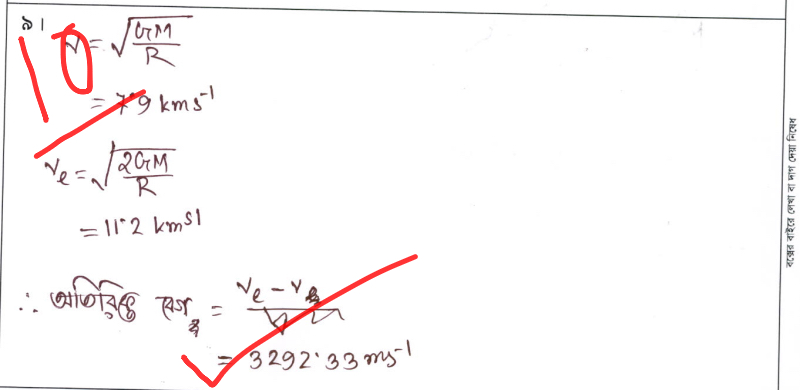 ৯।
v = √(GM/R)
10
= 7.9 kms⁻¹
vₑ = √(2GM/R)
= 11.2 kms⁻¹
∴ অতিরিক্ত বেগ = vₑ - v
= 3292.33 ms⁻¹
বক্সের বাইরে লেখা বা দাগ দেয়া নিষেধ